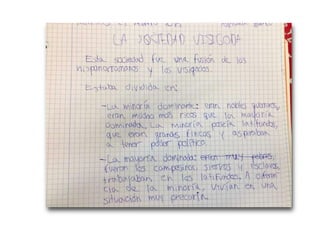 LA SOCIEDAD VISIGODA
Esta sociedad fue una fusión de los
hispanorromanos y los visigodos.
Estaba dividida en:
-La minoría dominante: eran nobles
eran mucho más ricos que la mayoría
dominada. La minoría poseía latifundios,
que eran grandes fincas y aspiraban
a tener poder político.
-La mayoría dominada: eran muy pobres,
fueron los campesinos, siervos y esclavos,
trabajaban en los latifundios. A diferen
cia de la minoría, vivían en una
situación muy precaria.